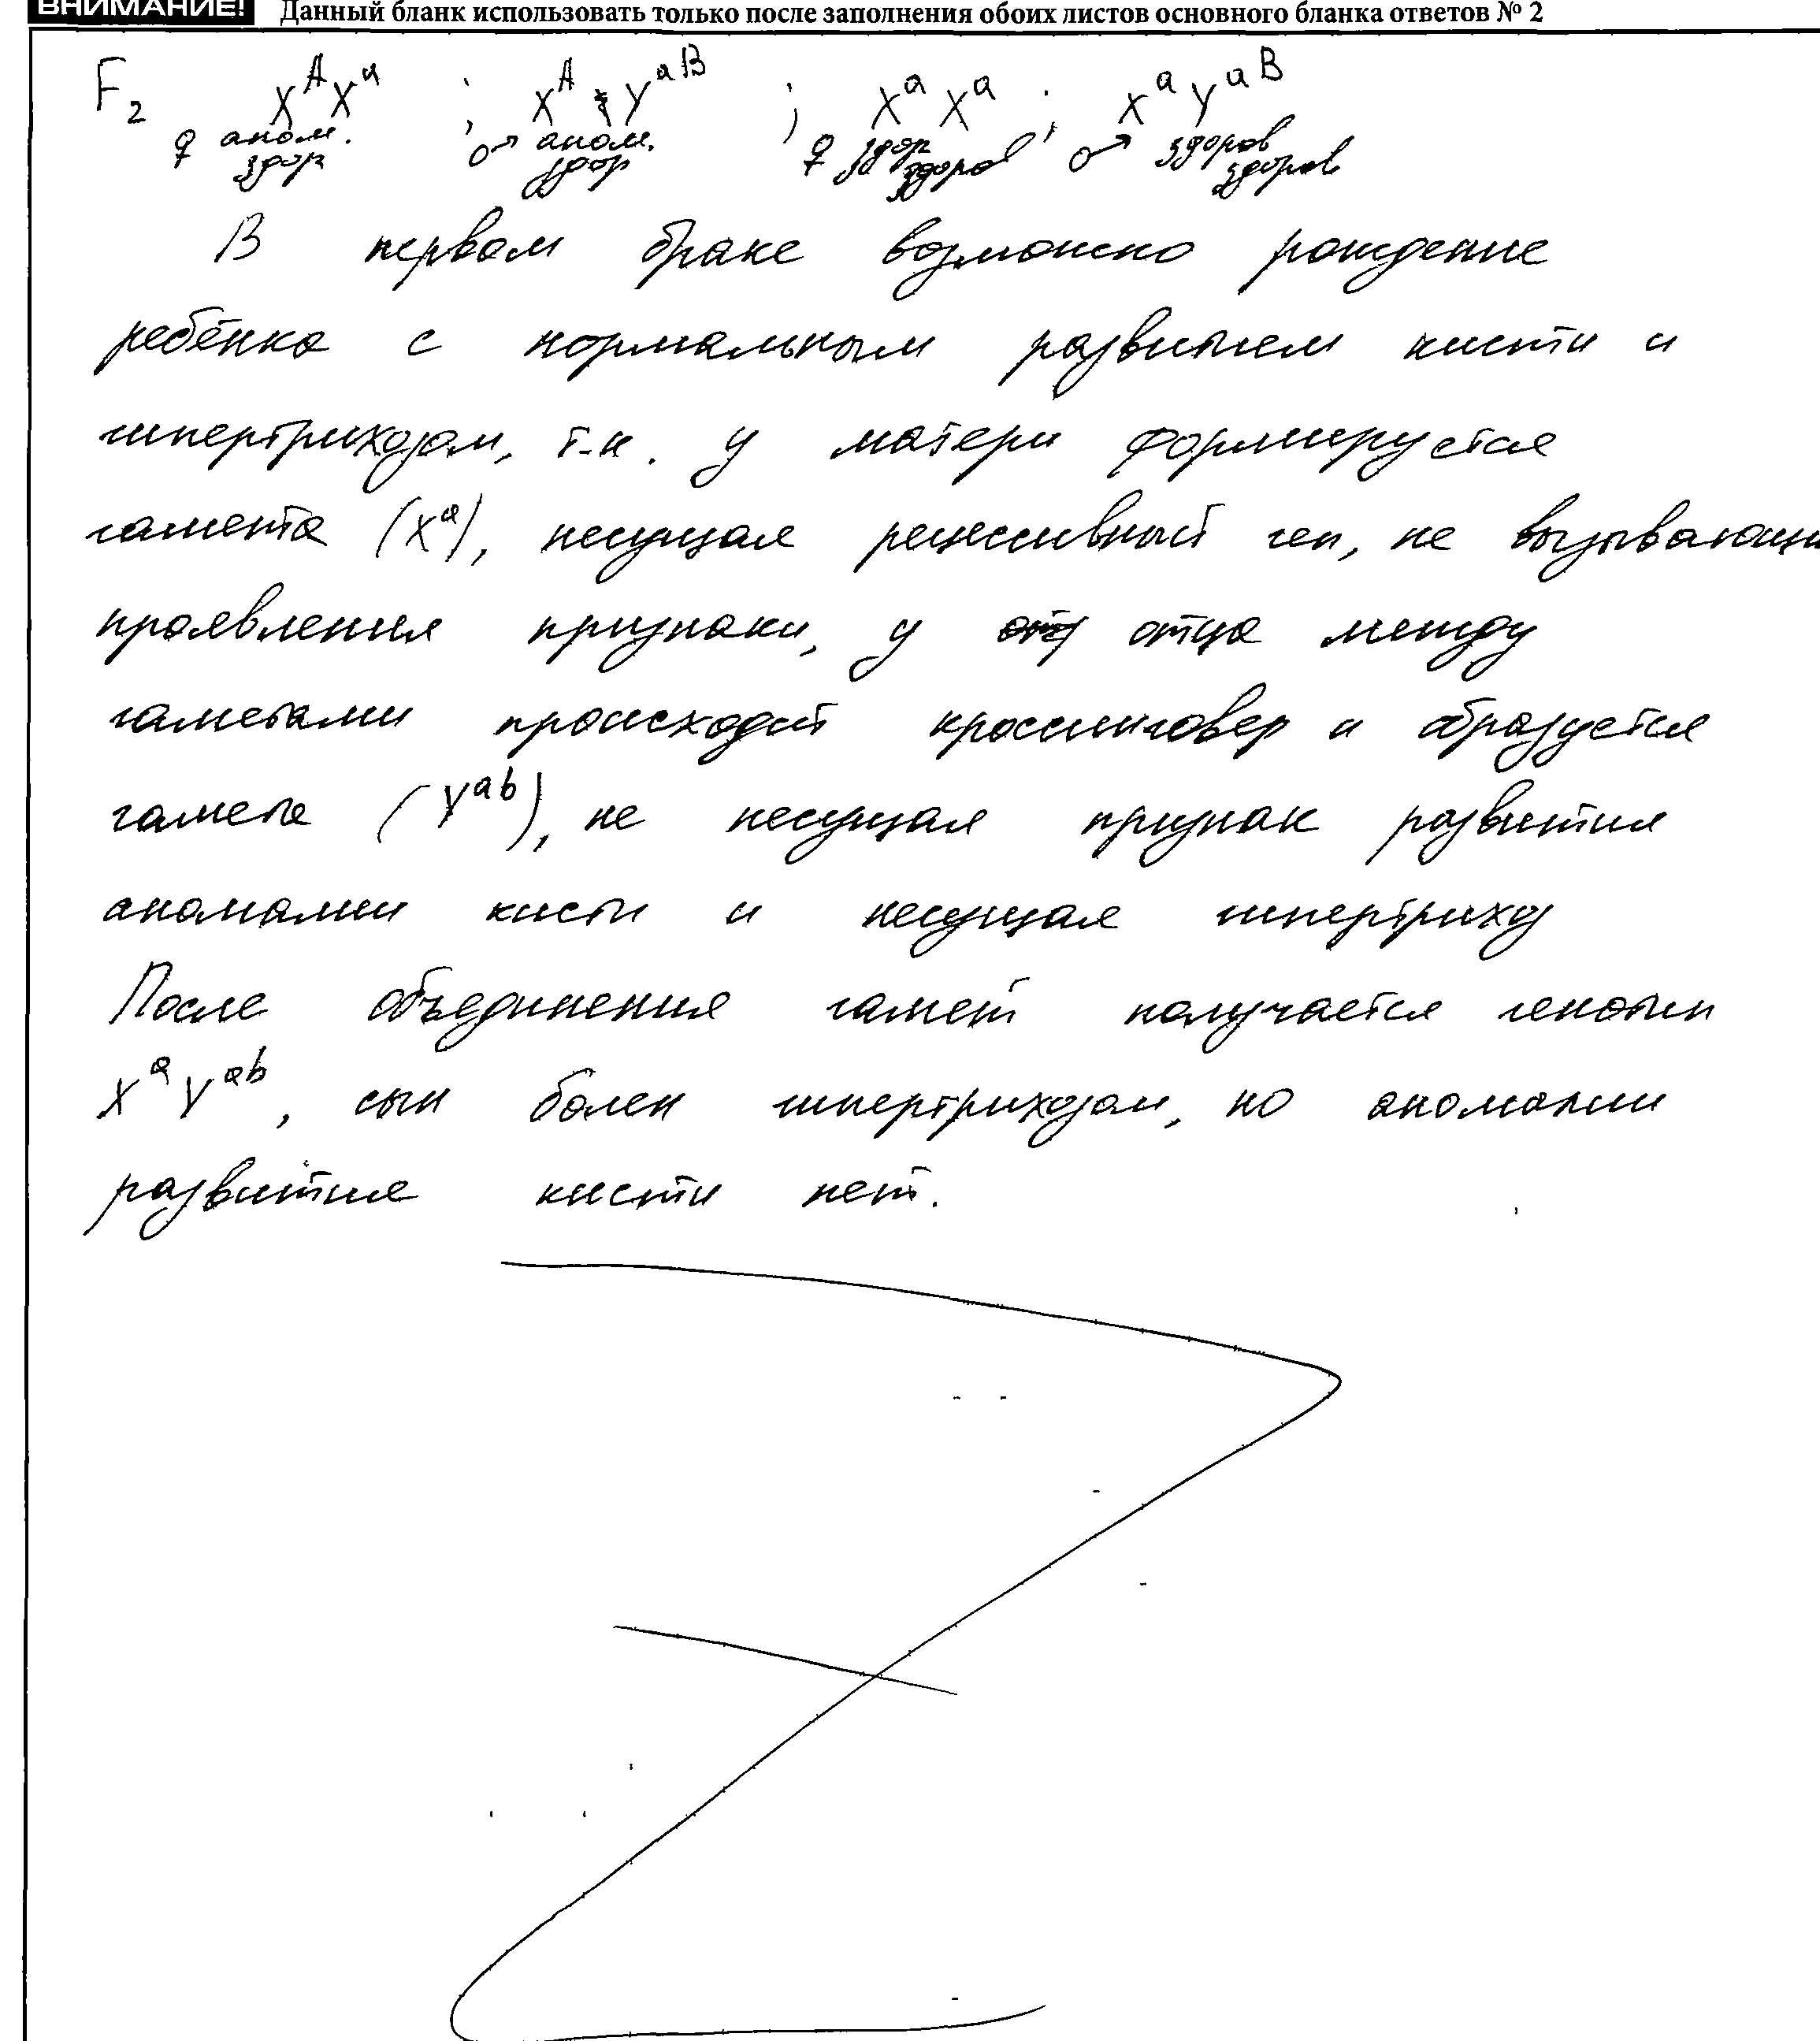 ВНИМАНИЕ! Данный бланк использовать только после заполнения обоих листов основного бланка ответов № 2
F₂ XᴬXᵃ ; XᴬYᵃᴮ ; XᵃXᵃ ; XᵃYᵃᴮ
♀ аном. ♂ аном. ♀ здор ♂ здоров
здор здор здоров здоров
В первом браке возможно рождение
ребёнка с нормальным развитием кисти и
гипертрихозом, т.к. у матери формируется
гамета (Xᵃ), несущая рецессивный ген, не вызывающи
проявления признаки, у отца между
гаметами происходит кроссинговер и образуется
гамета (Yᵃᵇ), не несущая признак развития
аномалии кисти и несущая гипертриху
После объединения гамет получается генотип
XᵃYᵃᵇ, сын болен гипертрихозом, но аномалии
развития кисти нет.